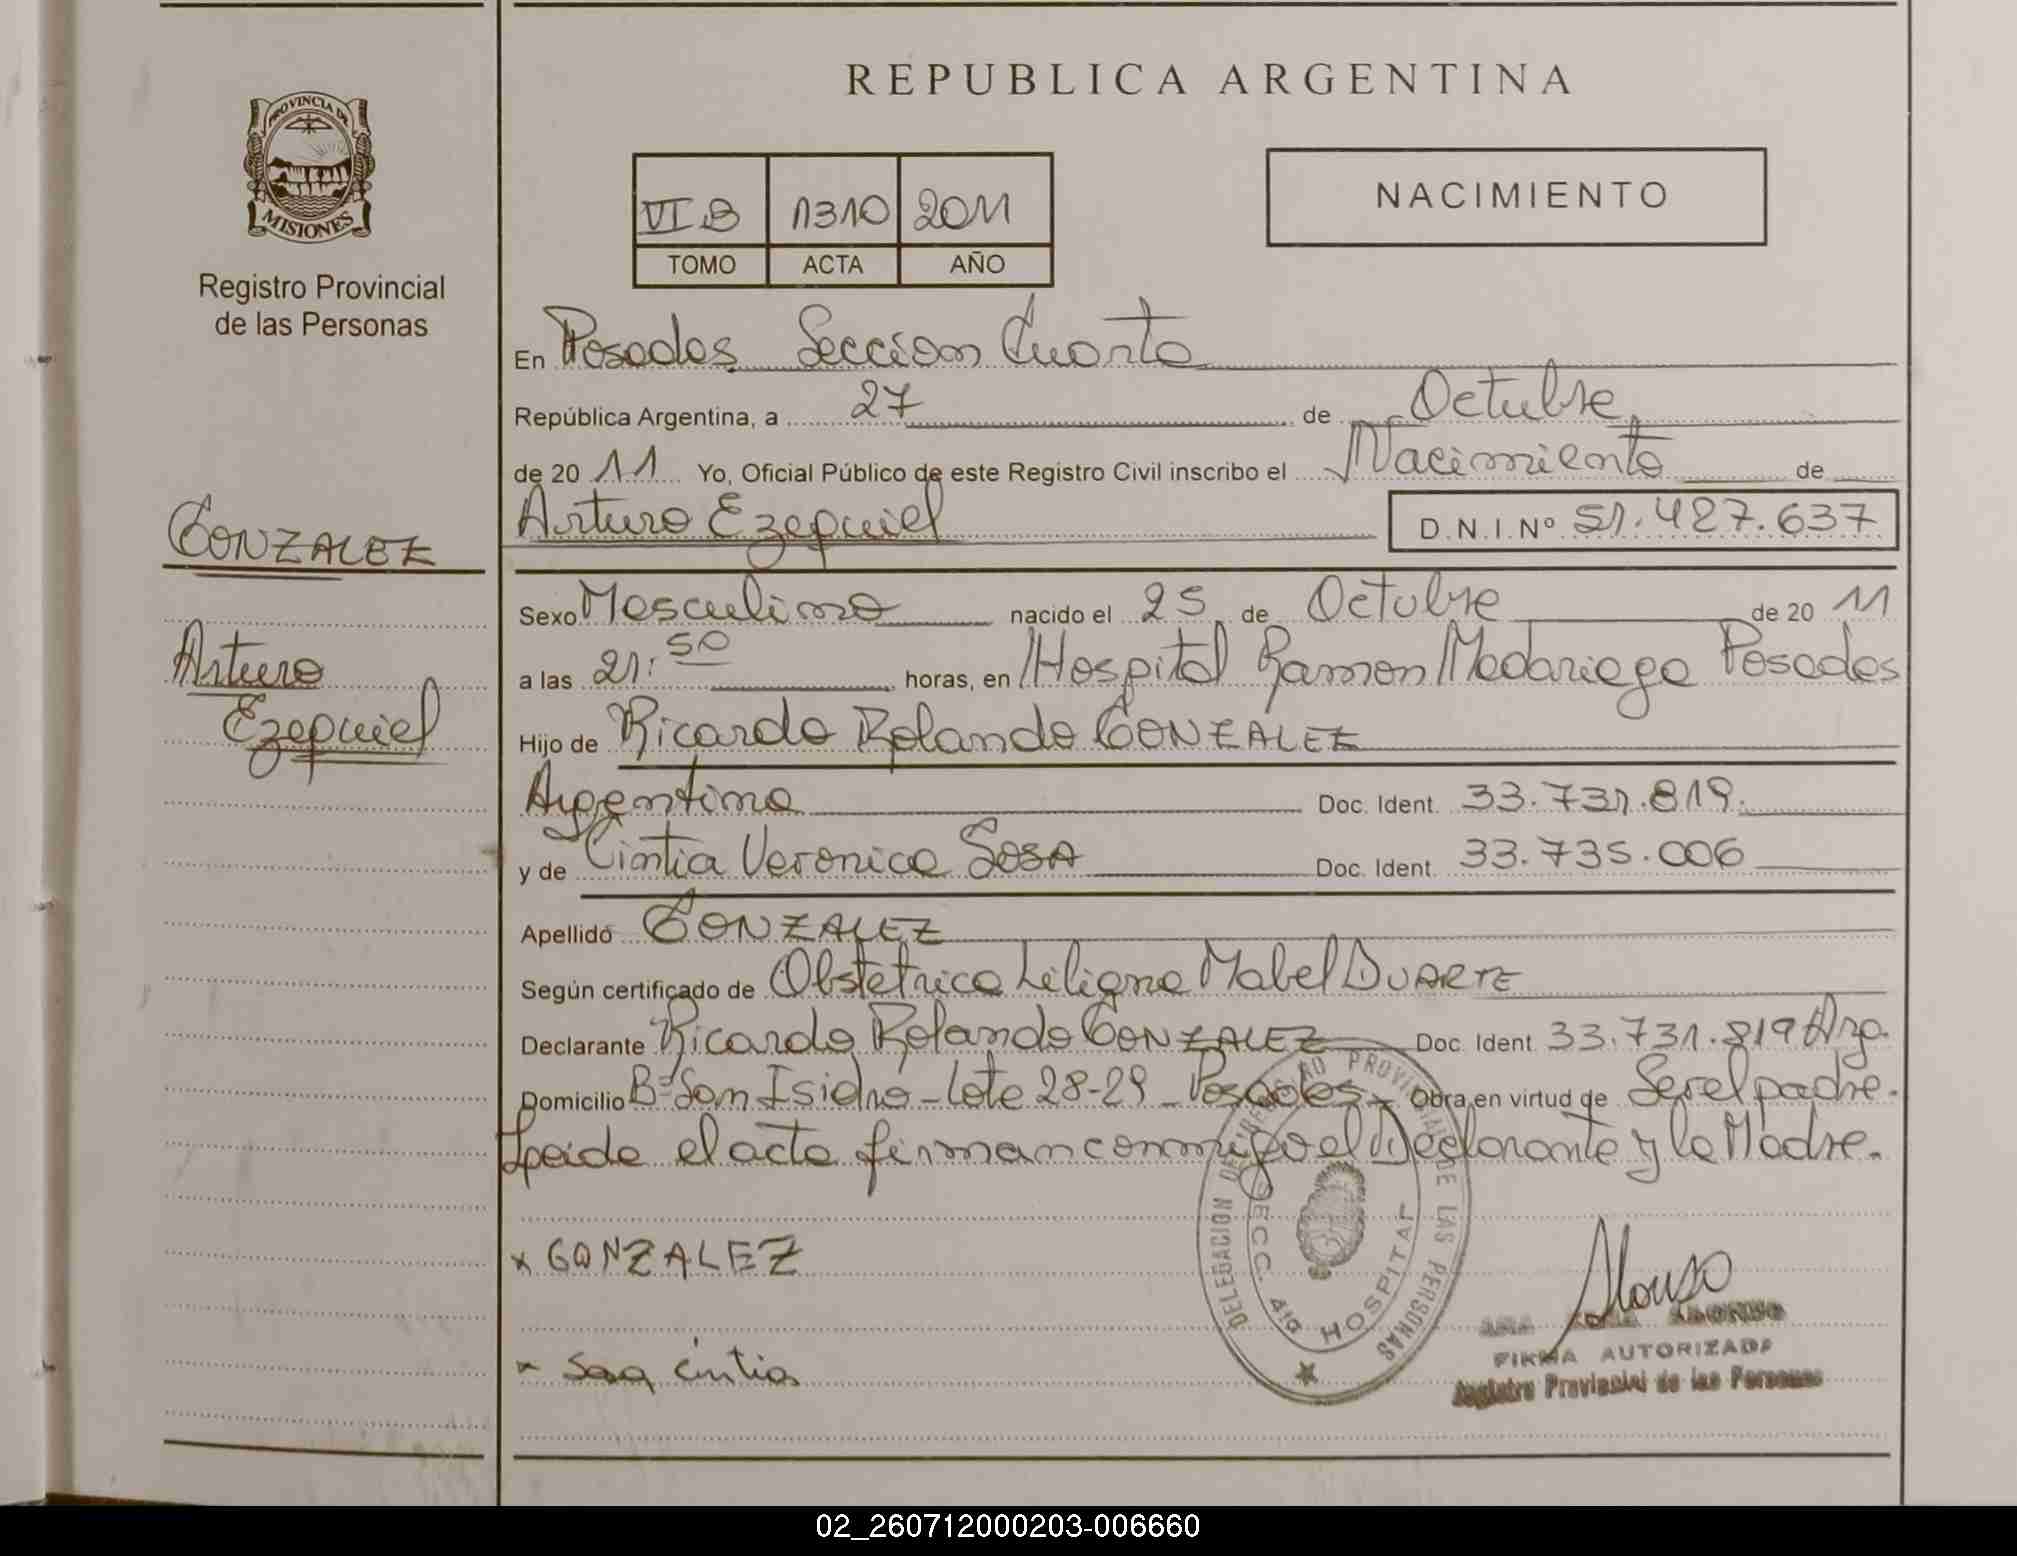 REPUBLICA ARGENTINA
PROVINCIA DE
MISIONES
Registro Provincial
de las Personas
VI.B 1310 2011
TOMO ACTA AÑO
NACIMIENTO
En Posadas Seccion Cuarta
República Argentina, a 27 de Octubre
de 20 11 Yo, Oficial Público de este Registro Civil inscribo el Nacimiento de
Arturo Ezequiel D.N.I. Nº 51.427.637
GONZALEZ
Arturo
Ezequiel
Sexo Masculino nacido el 25 de Octubre de 20 11
a las 21:50 horas, en Hospital Ramon Madariaga Posadas
Hijo de Ricardo Rolando GONZALEZ
Argentina Doc. Ident. 33.731.819.
y de Cintia Veronica SOSA Doc. Ident. 33.735.006
Apellido GONZALEZ
Según certificado de Obstetrica Liliana Mabel DUARTE
Declarante Ricardo Rolando GONZALEZ Doc. Ident. 33.731.819 Arg.
Domicilio Bº San Isidro - Lote 28-29 - Posadas - Obra en virtud de Ser el padre.
Leida el acta firman conmigo el Declarante y la Madre.
x GONZALEZ
x Sosa Cintia
DELEGACION DEL REGISTRO PROVINCIAL DE LAS PERSONAS
SECC. 4ta HOSPITAL
Alonso
FIRMA AUTORIZADA
Registro Provincial de las Personas
02_260712000203-006660